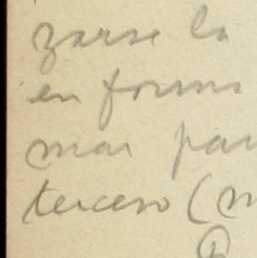 zarse la
en forma
mar par
tercero (m